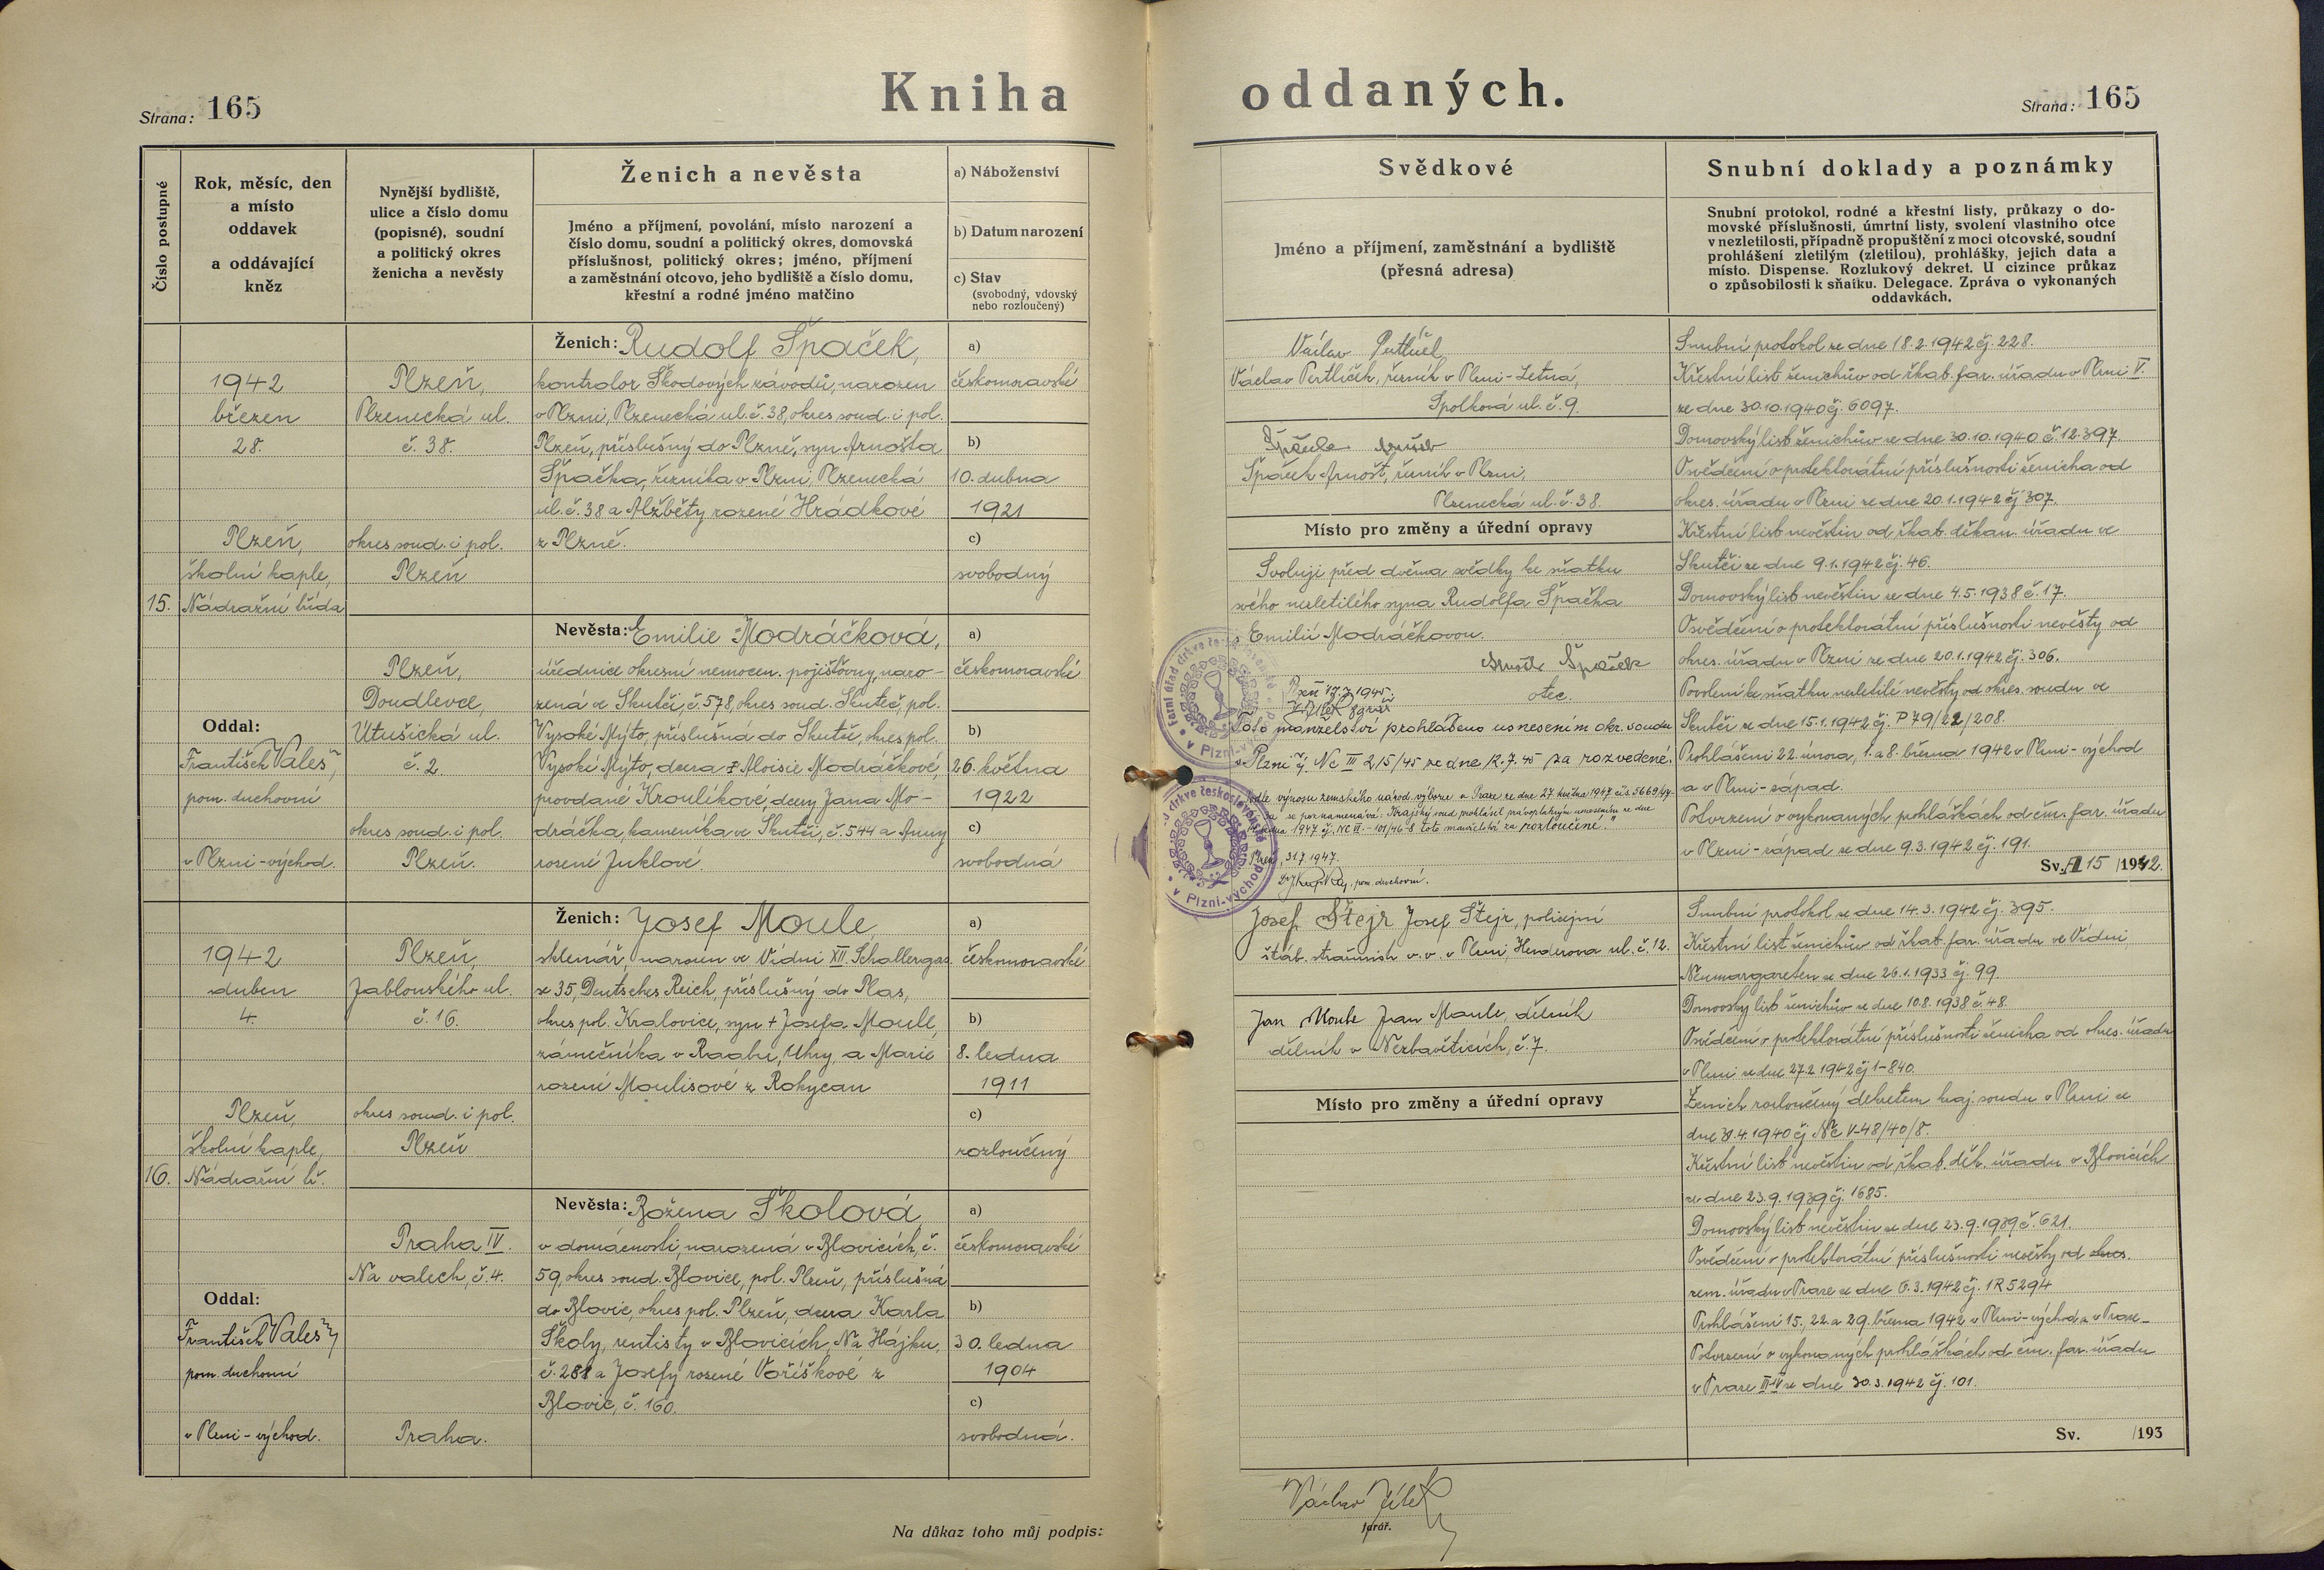 Strana: 165
Kniha
Číslo postupné
Rok, měsíc, den
a místo
oddavek
a oddávající
kněz
Nynější bydliště,
ulice a číslo domu
(popisné), soudní
a politický okres
ženicha a nevěsty
Ženich a nevěsta
Jméno a příjmení, povolání, místo narození a
číslo domu, soudní a politický okres, domovská
příslušnost, politický okres; jméno, příjmení
a zaměstnání otcovo, jeho bydliště a číslo domu,
křestní a rodné jméno matčino
a) Náboženství
b) Datum narození
c) Stav
(svobodný, vdovský
nebo rozloučený)
15.
1942
březen
28.
Plzeň,
školní kaple,
Nádražní třída
Oddal:
František Valeš,
pom. duchovní
v Plzni-východ.
Plzeň,
Plzenecká ul.
č. 38.
okres soud. i pol.
Plzeň
Ženich: Rudolf Špaček,
kontrolor Škodových závodů, narozen
v Plzni, Plzenecká ul. č. 38, okres soud. i pol.
Plzeň, příslušný do Plzně, syn Arnošta
Špačka, řezníka v Plzni, Plzenecká
ul. č. 38 a Alžběty rozené Hrádkové
z Plzně.
a)
českomoravské
b)
10. dubna
1921
c)
svobodný
Plzeň,
Doudlevce,
Útušická ul.
č. 2
okres soud. i pol.
Plzeň.
Nevěsta: Emilie Modráčková,
úřednice okresní nemocen. pojišťovny, naro-
zená ve Skutči, č. 578, okres soud. Skuteč, pol.
Vysoké Mýto, příslušná do Skutče, okres pol.
Vysoké Mýto, dcera Aloisie Modráčkové,
provdané Kroulíkové, dcery Jana Mo-
dráčka, kameníka ve Skutči, č. 544 a Anny
rozené Juklové.
a)
českomoravské
b)
26. května
1922
c)
svobodná
16.
1942
duben
4.
Plzeň,
školní kaple,
Nádražní tř.
Oddal:
František Valeš,
pom. duchovní
v Plzni-východ.
Plzeň,
Jablonského ul.
č. 16.
okres soud. i pol.
Plzeň
Ženich: Josef Moule,
sklenář, narozen ve Vídni XII. Schallergas
se 35, Deutsches Reich, příslušný do Plas,
okres pol. Kralovice, syn + Josefa Moule,
zámečníka v Raabu, Uhry, a Marie
rozené Moulisové z Rokycan
a)
českomoravské
b)
8. ledna
1911
c)
rozloučený
Praha IV.
Na valech, č. 4.
Praha.
Nevěsta: Božena Školová,
v domácnosti, narozená v Blovicích, č.
59, okres soud. Blovice, pol. Plzeň, příslušná
do Blovic, okres pol. Plzeň, dcera Karla
Školy, rentisty v Blovicích, Na Hájku,
č. 281 a Josefy rozené Voříškové z
Blovic, č. 160.
a)
českomoravské
b)
30. ledna
1904
c)
svobodná.
Na důkaz toho můj podpis:
oddaných.
Strana: 165
Svědkové
Jméno a příjmení, zaměstnání a bydliště
(přesná adresa)
Snubní doklady a poznámky
Snubní protokol, rodné a křestní listy, průkazy o do-
movské příslušnosti, úmrtní listy, svolení vlastního otce
v nezletilosti, případně propuštění z moci otcovské, soudní
prohlášení zletilým (zletilou), prohlášky, jejich data a
místo. Dispense. Rozlukový dekret. U cizince průkaz
o způsobilosti k sňatku. Delegace. Zpráva o vykonaných
oddavkách.
Václav
Václav Pertlíček, řezník v Plzni-Letná,
Spolková ul. č. 9.
Špaček Arnošt
Špaček Arnošt, řezník v Plzni,
Plzenecká ul. č. 38.
Místo pro změny a úřední opravy
Svoluji před dvěma svědky ke sňatku
svého nezletilého syna Rudolfa Špačka
s Emilií Modráčkovou.
Arnošt Špaček
otec.
Toto manželství prohlášeno usnesením okr. soudu
v Plzni čj. Nc III 215/45 ze dne 12.7.45 za rozvedené.
Podle výnosu zemského národ. výboru v Praze ze dne 27. května 1947
se poznamenává: Krajský soud prohlásil pravoplatným usnesením ze dne
1947 čj. NC II.-101/46-8 toto manželství za rozloučené."
Plzeň, 31.7.1947.
pom. duchovní.
farní úřad církve
v Plzni-východ
církve českoslovanské
v Plzni-východ
Snubní protokol ze dne 18.2.1942 čj. 228.
Křestní list ženichův od řkat. far. úřadu v Plzni V.
ze dne 30.10.1940 čj. 6097.
Domovský list ženichův ze dne 30.10.1940 č. 12.397.
Osvědčení o protektorátní příslušnosti ženicha od
okres. úřadu v Plzni ze dne 20.1.1942 čj 307.
Křestní list nevěstin od řkat. děkan. úřadu ve
Skutči ze dne 9.1.1942 čj. 46.
Domovský list nevěstin ze dne 4.5.1938 č. 17.
Osvědčení o protektorátní příslušnosti nevěsty od
okres. úřadu v Plzni ze dne 20.1.1942 čj. 306.
Povolení ke sňatku nezletilé nevěsty od okres. soudu ve
Skutči ze dne 15.1.1942 čj. P 79/22/208.
Prohlášení 22. února, 1. a 8. března 1942 v Plzni-východ
a v Plzni-západ.
Potvrzení o vykonaných prohláškách od čm. far. úřadu
v Plzni-západ ze dne 9.3.1942 čj. 191.
Sv. 15 /1942.
Josef Štejr Josef Štejr, policejní
štáb. strážmistr v. v. v Plzni, Henderova ul. č. 12.
Jan Moule Jean Moule, dělník
dělník v Nezbavěticích, č. 7.
Místo pro změny a úřední opravy
Snubní protokol ze dne 14.3.1942 čj. 395.
Křestní list ženichův od řkat. far. úřadu ve Vídni
Neumargareten ze dne 26.1.1933 čj. 99.
Domovský list ženichův ze dne 10.8.1938 č. 48.
Osvědčení o protektorátní příslušnosti ženicha od okres. úřadu
v Plzni ze dne 27.2.1942 čj 1-840.
Ženich rozloučený dekretem kraj. soudu v Plzni ze
dne 4.1940 čj Nc V-48/40/8.
Křestní list nevěstin od řkat. děk. úřadu v Blovicích
ze dne 23.9.1939 čj. 1685.
Domovský list nevěstin ze dne 23.9.1939 č. 621.
Osvědčení o protektorátní příslušnosti nevěsty od okres.
zem. úřadu v Praze ze dne 6.3.1942 čj. 1R 5294
Prohlášení 15., 22. a 29. března 1942 v Plzni-východ a v Praze
Potvrzení o vykonaných prohláškách od čm. far. úřadu
v Praze III-IV ze dne 30.3.1942 čj. 101.
Sv. /193
Václav Jílek
farář.